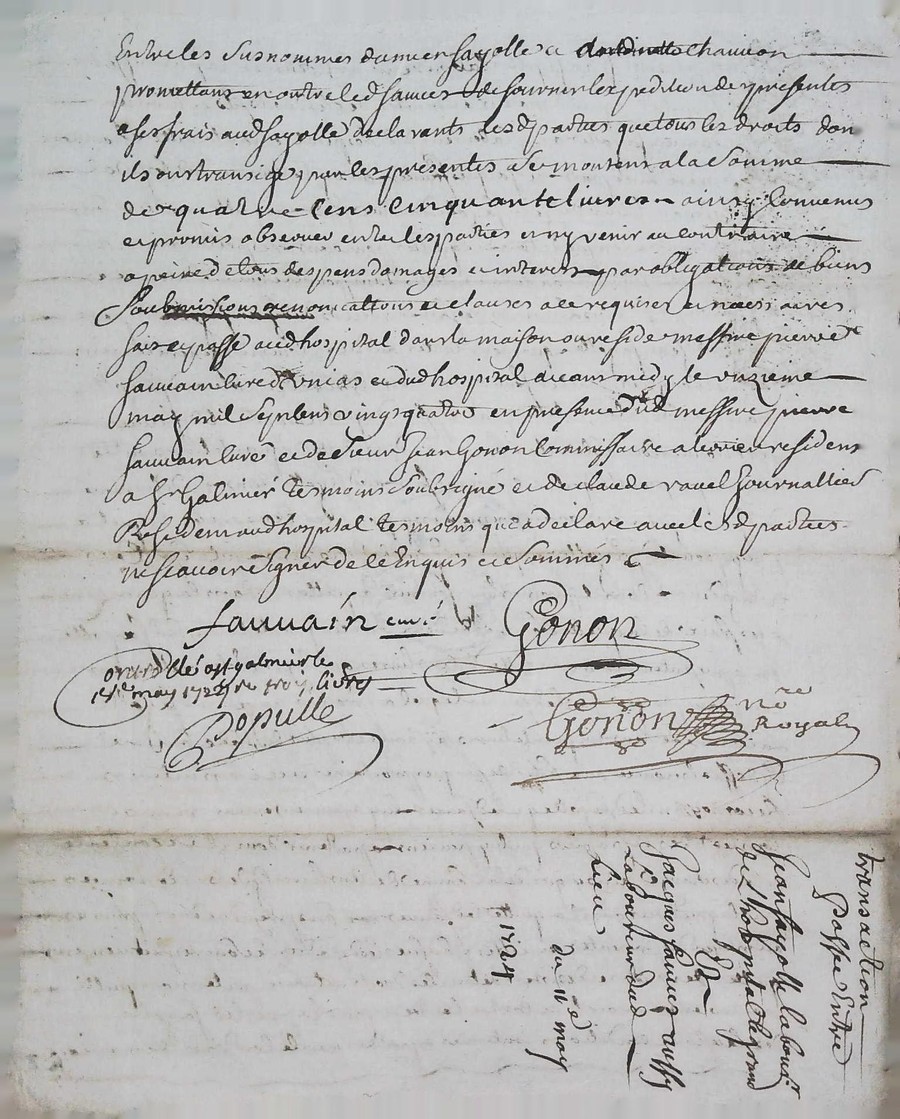 Entre les susnommes damier fayolle et chauvon
promettans en outre led fauvier de fournir lexpedition des presentes
a ses frais aud fayolle declarants lesd parties que tous les droits don
ils ont transiges par les presentes se montent a la somme
de quatre cens cinquante livres ainsy convenus
et promis observer entre les parties et ny venir au contraire
a peine de tous despens damages et interets par obligations de biens
Soubmissions renoncations et clauses a ce requises et necessaires
fait et passé aud hospital dans la maison ou reside messire pierre
fauvain curé de et dud hospital avant midy le unzieme
may mil sept cens vingt quatre en presence dud messire pierre
fauvain curé et de sieur Jean Gonon Commissaire a resident
a St Galmier tesmoins soubsigné et de claude ravel Journallier
Resident aud hospital tesmoins qui a declare avec lesd parties
ne scavoir signer de ce Enquis et Sommés
fauvain curé
Gonon
a st galmier le
may 1724 livres
Populle
Gonon nore
Royal
transaction
Passée Entre
Jean fayolle labourr
de L'hospital le grand
Et
Jacques fauvier aussy
Laboureur dud
Lieu
du 11e may
1724